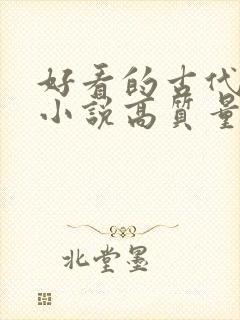 好看的古代
小说高质量
北堂墨